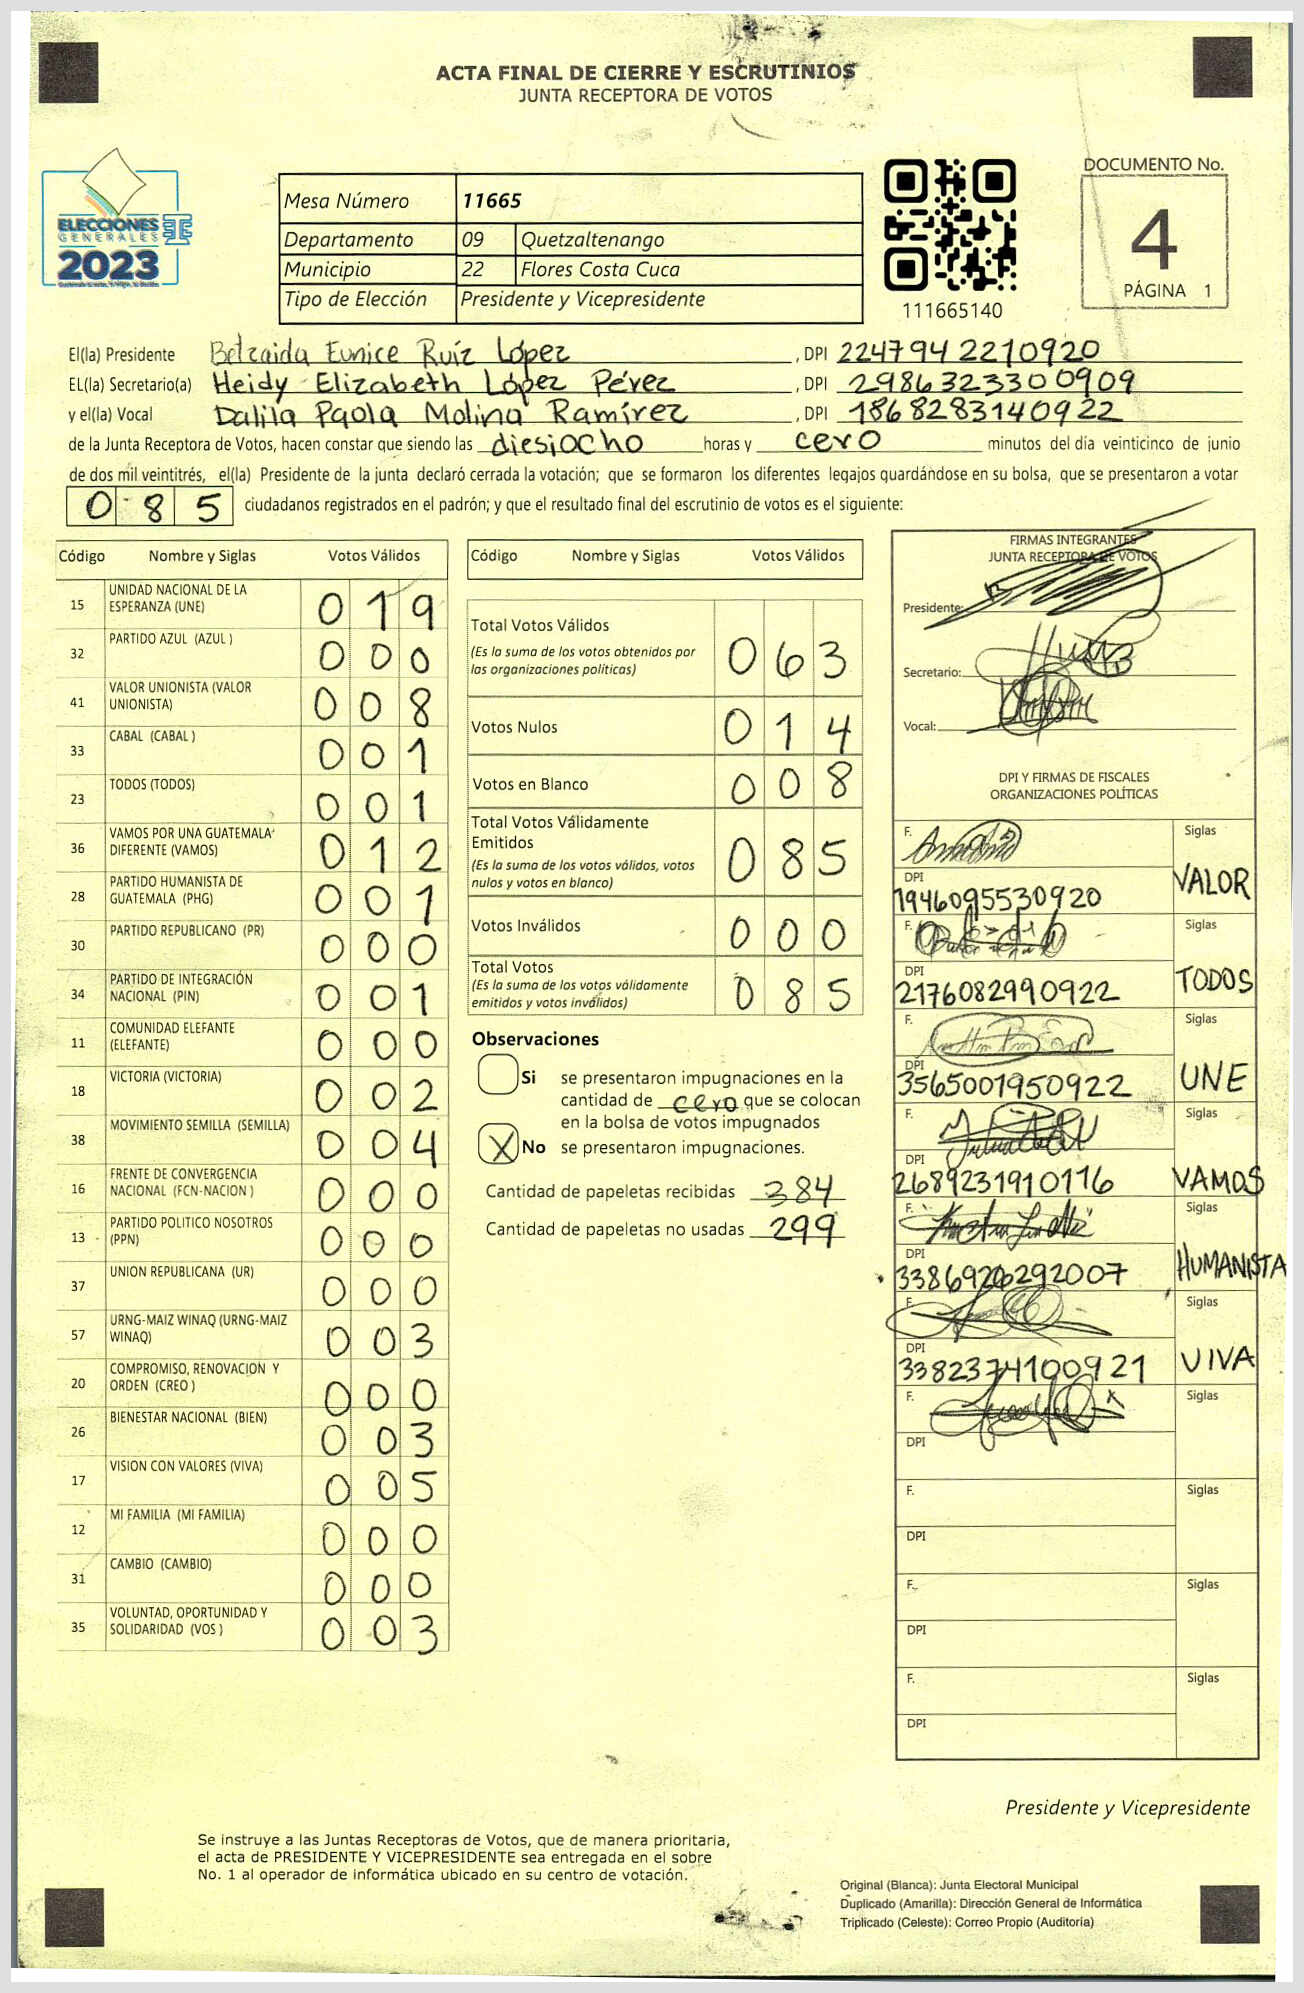 ACTA FINAL DE CIERRE Y ESCRUTINIOS
JUNTA RECEPTORA DE VOTOS
ELECCIONES
GENERALES
2023
Mesa Número 11665
Departamento 09 Quetzaltenango
Municipio 22 Flores Costa Cuca
Tipo de Elección Presidente y Vicepresidente
111665140
DOCUMENTO No.
4
PÁGINA 1
El(la) Presidente Betzaida Eunice Ruíz López , DPI 2247942210920
EL(la) Secretario(a) Heidy Elizabeth López Pérez , DPI 2986323300909
y el(la) Vocal Dalila Paola Molina Ramírez , DPI 1868283140922
de la Junta Receptora de Votos, hacen constar que siendo las diesiocho horas y cero minutos del día veinticinco de junio
de dos mil veintitrés, el(la) Presidente de la junta declaró cerrada la votación; que se formaron los diferentes legajos quardándose en su bolsa, que se presentaron a votar
085 ciudadanos registrados en el padrón; y que el resultado final del escrutinio de votos es el siguiente:
Código Nombre y Siglas Votos Válidos
15 UNIDAD NACIONAL DE LA ESPERANZA (UNE) 019
32 PARTIDO AZUL (AZUL ) 000
41 VALOR UNIONISTA (VALOR UNIONISTA) 008
33 CABAL (CABAL ) 001
23 TODOS (TODOS) 001
36 VAMOS POR UNA GUATEMALA DIFERENTE (VAMOS) 012
28 PARTIDO HUMANISTA DE GUATEMALA (PHG) 001
30 PARTIDO REPUBLICANO (PR) 000
34 PARTIDO DE INTEGRACIÓN NACIONAL (PIN) 001
11 COMUNIDAD ELEFANTE (ELEFANTE) 000
18 VICTORIA (VICTORIA) 002
38 MOVIMIENTO SEMILLA (SEMILLA) 004
16 FRENTE DE CONVERGENCIA NACIONAL (FCN-NACION ) 000
13 PARTIDO POLITICO NOSOTROS (PPN) 000
37 UNION REPUBLICANA (UR) 000
57 URNG-MAIZ WINAQ (URNG-MAIZ WINAQ) 003
20 COMPROMISO, RENOVACION Y ORDEN (CREO ) 000
26 BIENESTAR NACIONAL (BIEN) 003
17 VISION CON VALORES (VIVA) 005
12 MI FAMILIA (MI FAMILIA) 000
31 CAMBIO (CAMBIO) 000
35 VOLUNTAD, OPORTUNIDAD Y SOLIDARIDAD (VOS ) 003
Código Nombre y Siglas Votos Válidos
Total Votos Válidos 063
(Es la suma de los votos obtenidos por
las organizaciones políticas)
Votos Nulos 014
Votos en Blanco 008
Total Votos Válidamente
Emitidos 085
(Es la suma de los votos válidos, votos
nulos y votos en blanco)
Votos Inválidos 000
Total Votos 085
(Es la suma de los votos válidamente
emitidos y votos inválidos)
Observaciones
Si se presentaron impugnaciones en la
cantidad de cero que se colocan
en la bolsa de votos impugnados
X No se presentaron impugnaciones.
Cantidad de papeletas recibidas 384
Cantidad de papeletas no usadas 299
FIRMAS INTEGRANTES
JUNTA RECEPTORA DE VOTOS
Presidente:
Secretario:
Vocal:
DPI Y FIRMAS DE FISCALES
ORGANIZACIONES POLÍTICAS
F. Siglas
DPI VALOR
1946095530920
F. Siglas
DPI TODOS
2176082990922
F. Siglas
DPI UNE
3565001950922
F. Siglas
DPI VAMOS
2689231910116
F. Siglas
DPI HUMANISTA
F. Siglas
DPI VIVA
3382374100921
F. Siglas
DPI
F. Siglas
DPI
F. Siglas
DPI
F. Siglas
DPI
Presidente y Vicepresidente
Se instruye a las Juntas Receptoras de Votos, que de manera prioritaria,
el acta de PRESIDENTE Y VICEPRESIDENTE sea entregada en el sobre
No. 1 al operador de informática ubicado en su centro de votación.
Original (Blanca): Junta Electoral Municipal
Duplicado (Amarilla): Dirección General de Informática
Triplicado (Celeste): Correo Propio (Auditoría)